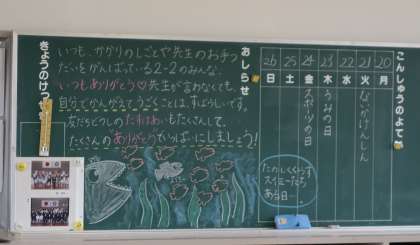 こんしゅうのよてい
20 月
21 火 ないかけんしん
22 水
23 木 うみの日
24 金 スポーツの日
25 土
26 日
おしらせ
いつも、かかりのしごとや先生のお手つ
だいをがんばっている2-2のみんな。
いつもありがとう♡先生が言わなくても、
自分でかんがえてうごくことは、すばらしいです。
友だちどうしのたすけあいもたくさんして、
たくさんの"ありがとう"でいっぱいにしましょう!
たのしくくらす
スイミーたち
ある日…
きょうのけつ